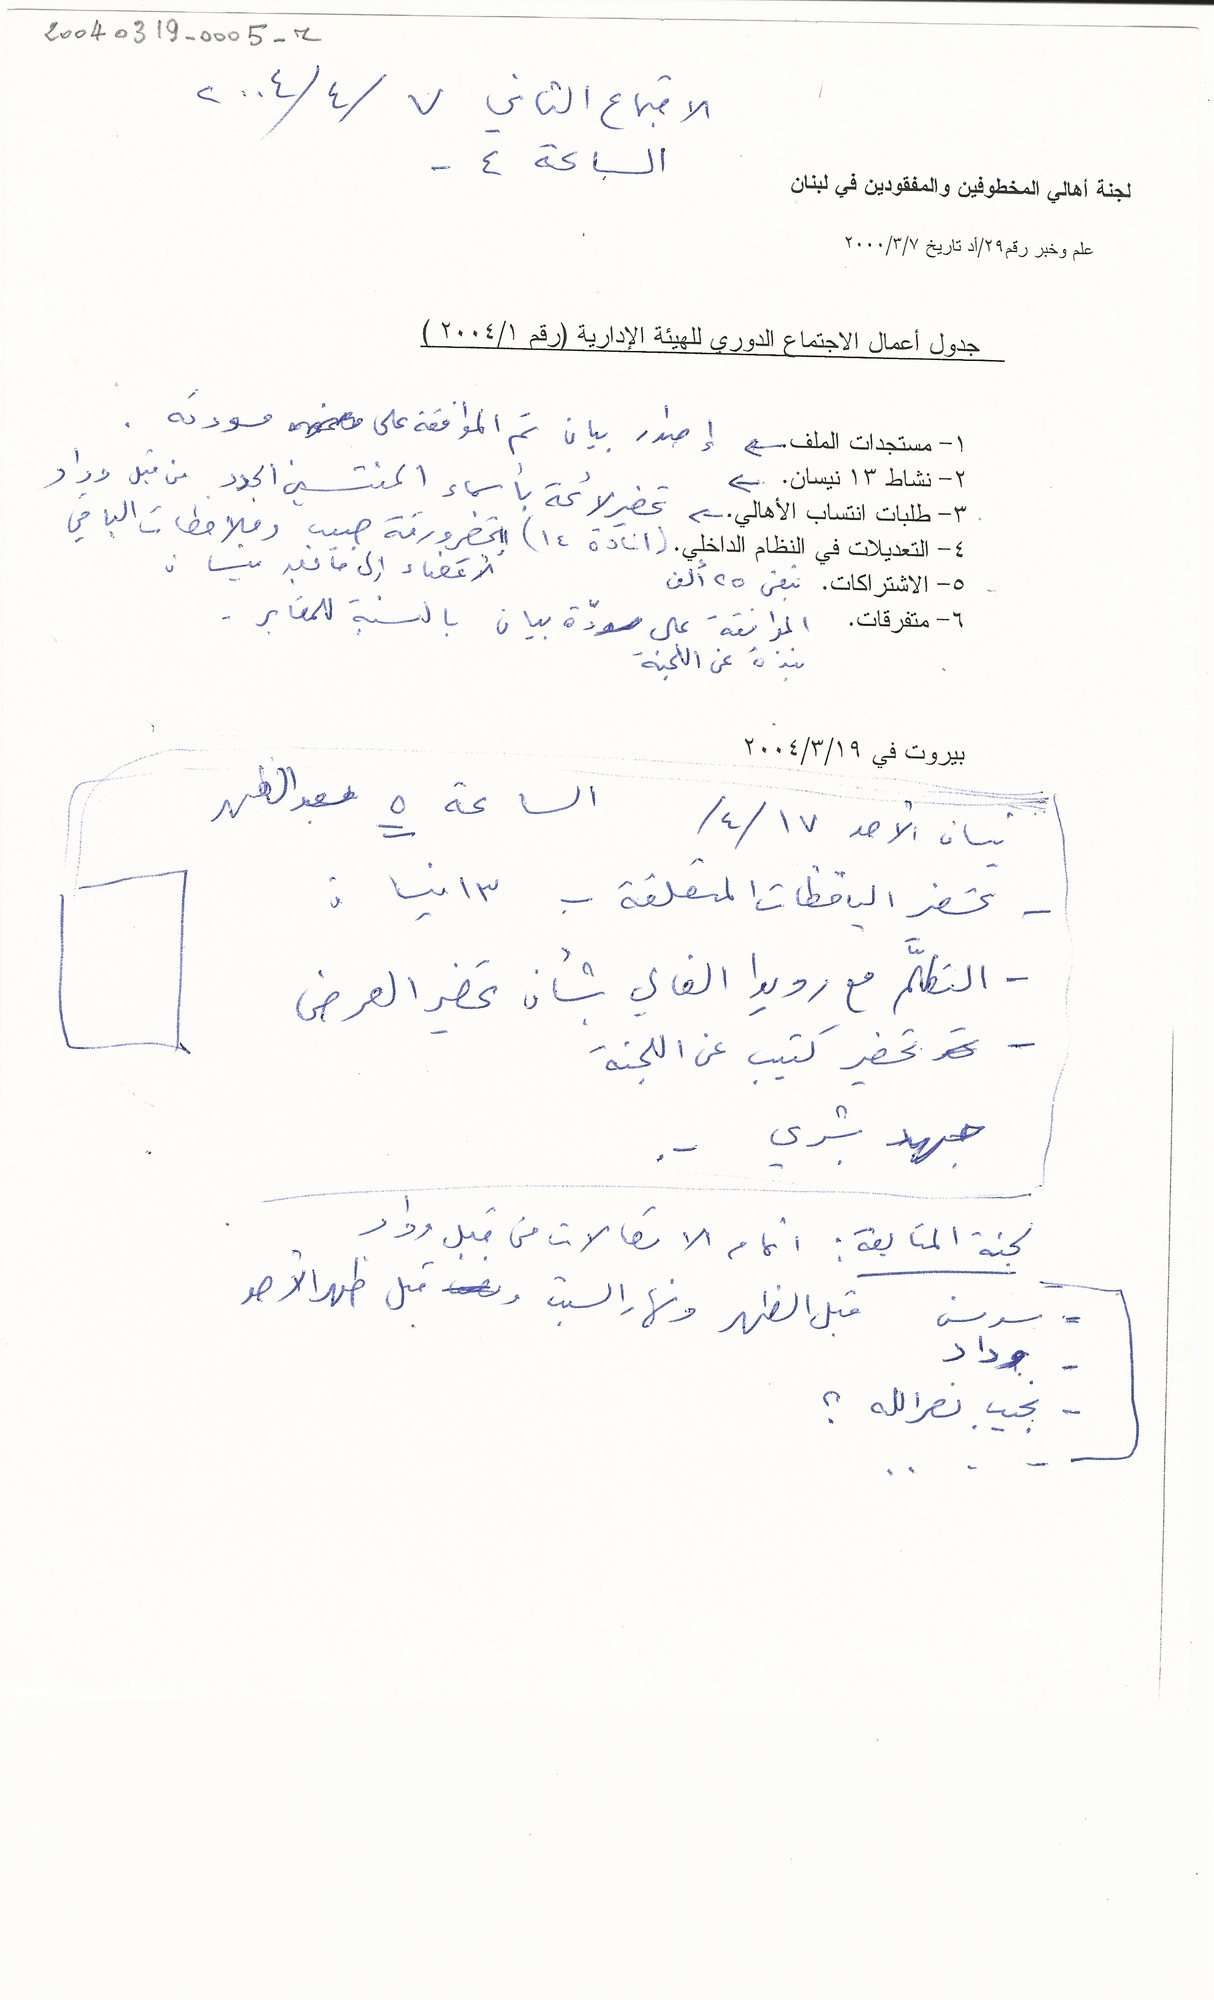 20040319-0005-2
الاجتماع الثاني ٧/٤/٢٠٠٤
الساعة ٤ -
لجنة أهالي المخطوفين والمفقودين في لبنان
علم وخبر رقم٢٩/أد تاريخ ٢٠٠٠/٣/٧
جدول أعمال الاجتماع الدوري للهيئة الإدارية (رقم ٢٠٠٤/١ )
١- مستجدات الملف. ← إصدار بيان تم الموافقة على مسودته .
٢- نشاط ١٣ نيسان. ←
٣- طلبات انتساب الأهالي. ← تحضير لائحة بأسماء المنتسبين الجدد من قبل وداد
٤- التعديلات في النظام الداخلي. (المادة ١٤) تحضر ورقة حبيب وملاحظات الباقي
الأعضاء إلى ما بعد نيسان
٥- الاشتراكات. تبقى ٢٥ ألف
٦- متفرقات. الموافقة على مسودّة بيان بالنسبة للمقابر -
نبذة عن اللجنة
بيروت في ٢٠٠٤/٣/١٩
نيسان الأحد ١٧/٤/ الساعة ٥ بعد الظهر
- تحضير اليافطات المتعلقة ب ١٣ نيسان
- التكلّم مع رويدا الغالي بشأن تحضير العرض
- تحضير كتيب عن اللجنة
جهد بشري -.
لجنة المتابعة: اتمام الاتصالات من قبل وداد
قبل الظهر ونهار السبت و قبل ظهر الأحد
- سوسن
- وداد
- نجيب نصرالله ؟
- . . .